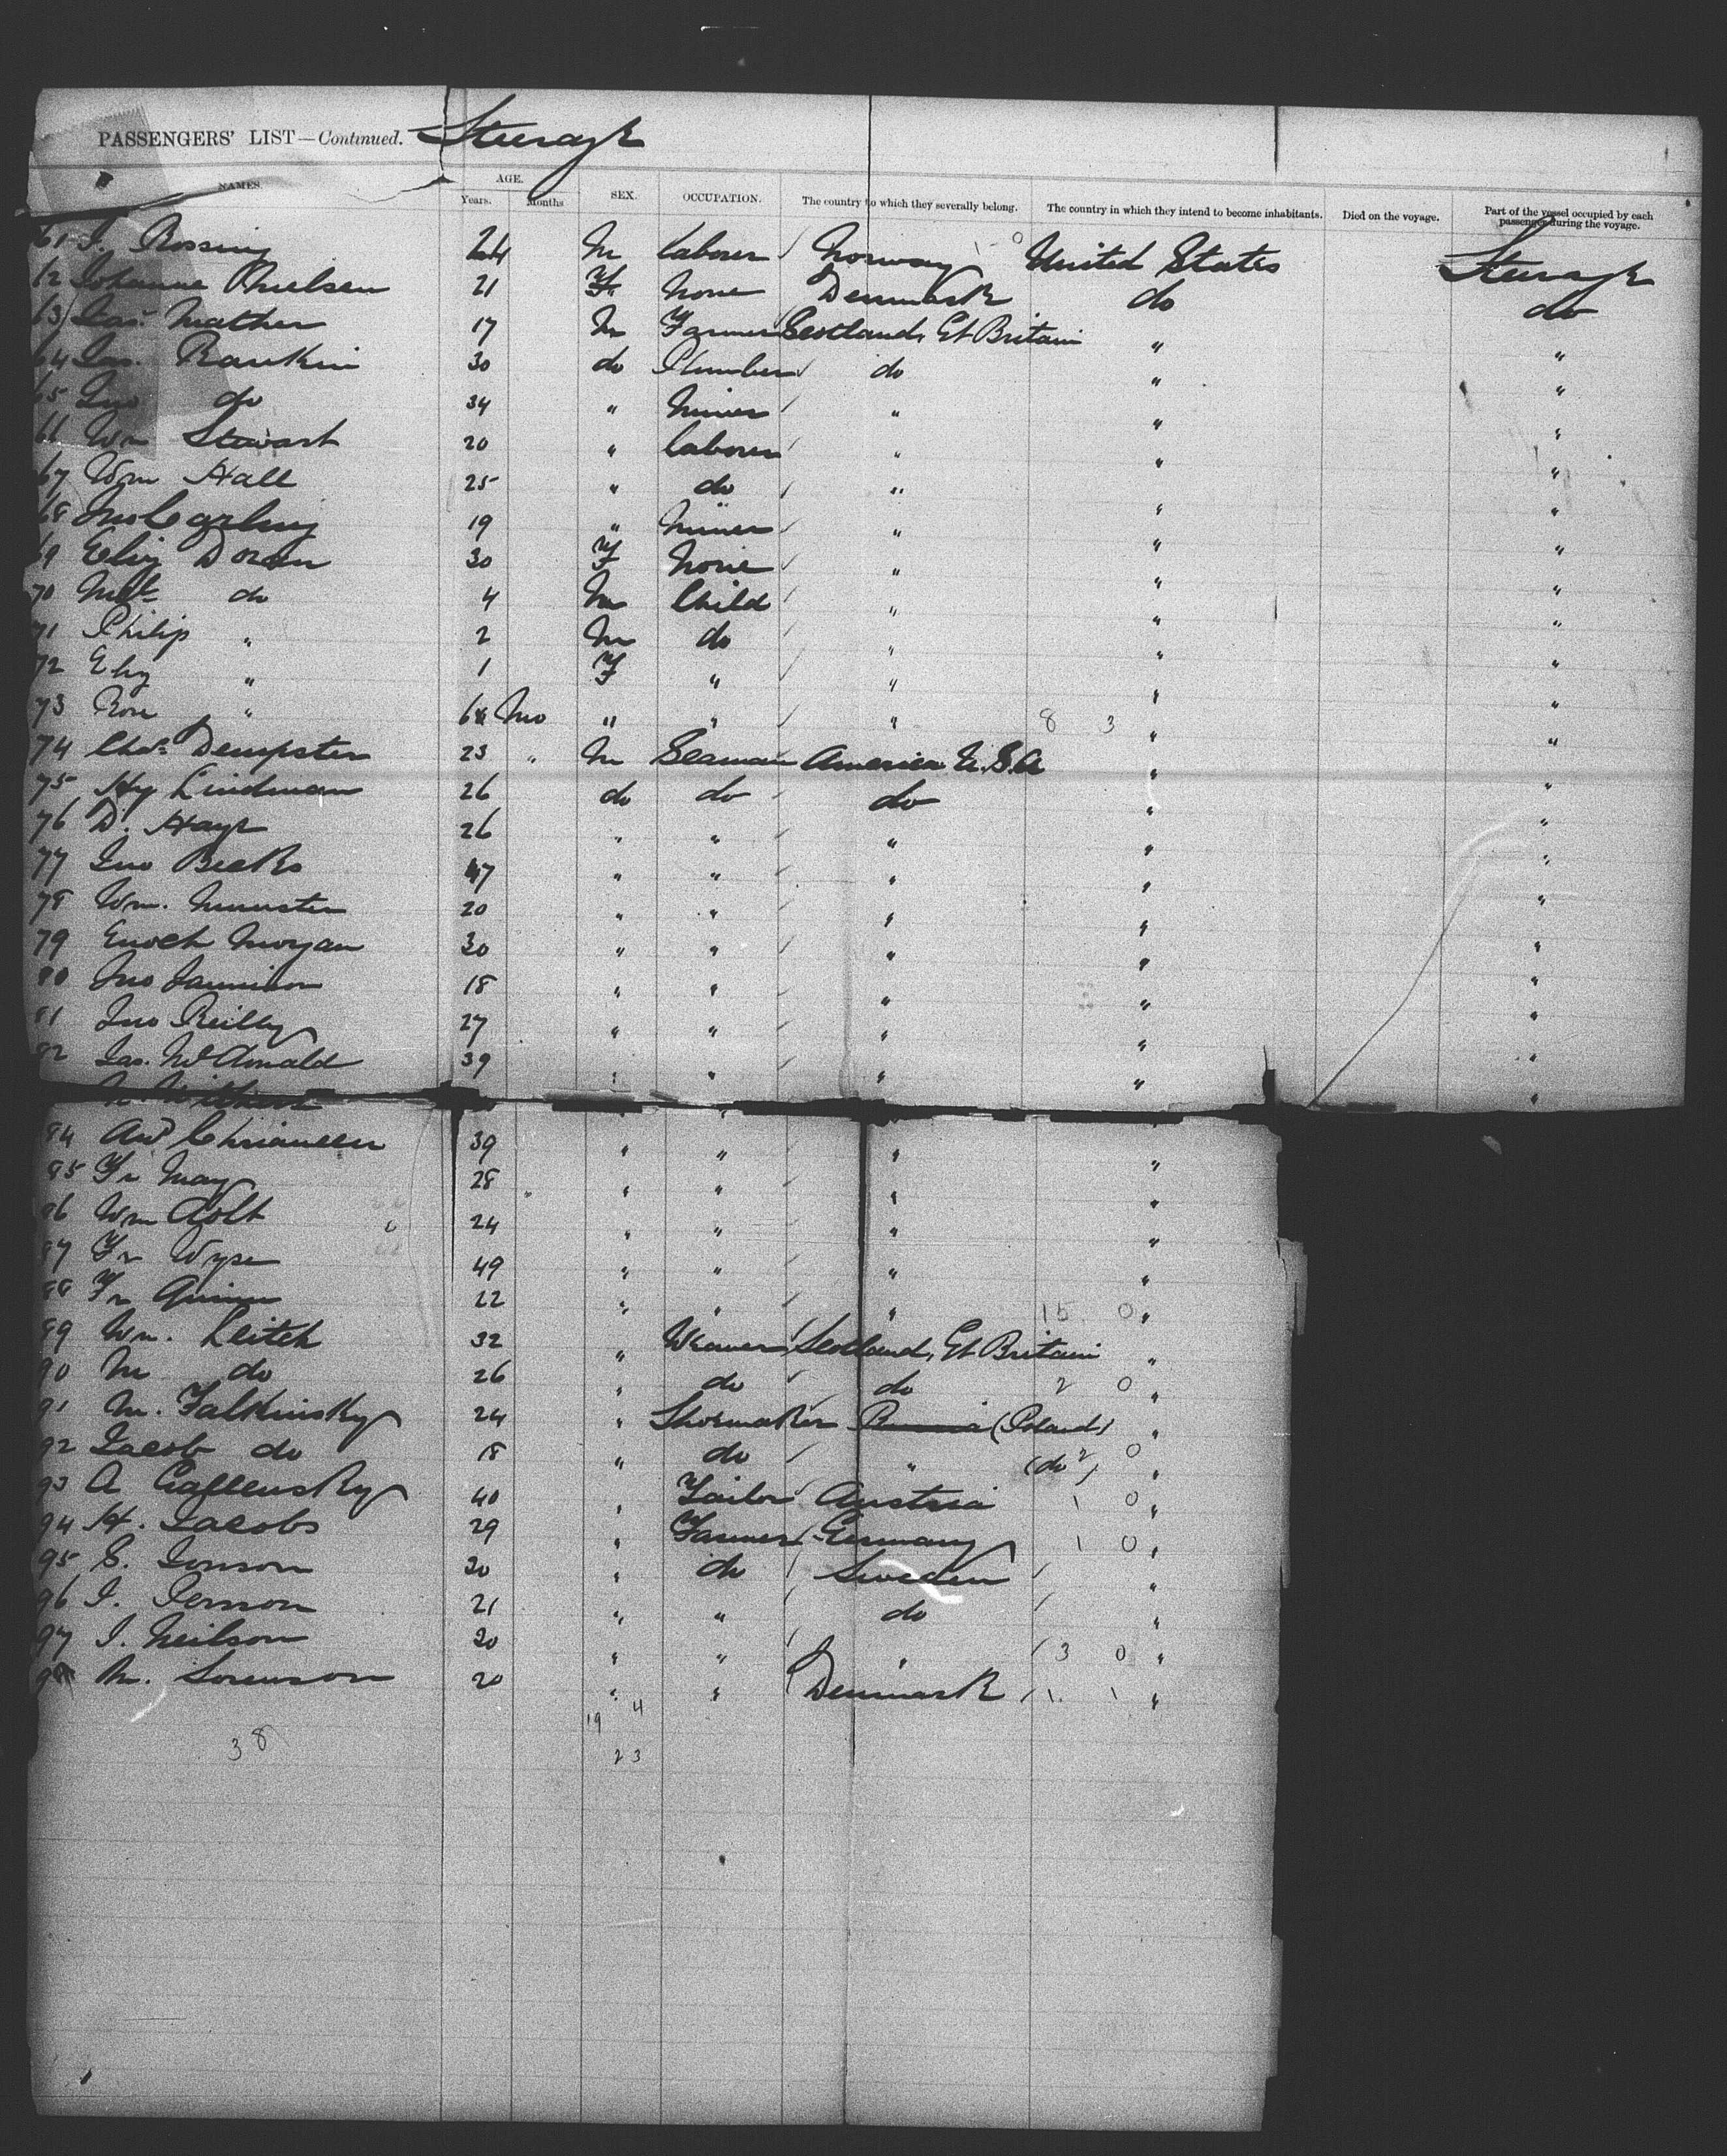 PASSENGERS' LIST—Continued. Steerage
NAMES. AGE. Years. Months SEX. OCCUPATION. The country to which they severally belong. The country in which they intend to become inhabitants. Died on the voyage. Part of the vessel occupied by each passenger during the voyage.
61 J. Rossing M Laborer Norway 1 0 United States Steerage
62 Johanne Nielsen 21 F None Denmark do do
63 Jas. Mather 17 M Farmer Scotland, Gt Britain " "
64 Jas. Rankin 30 do Plumber do " "
65 Jno do 34 " Miner " " "
66 Wm Stewart 20 " Laborer " " "
67 Wm Hall 25 " do " " "
68 Jno 19 " Miner " " "
69 Eliz Doran 30 F None " " "
70 do 4 M Child " " "
71 Philip " 2 M do " " "
72 Eliz " 1 F " " " "
73 Rose " 6 Mo " " " 8 3 " "
74 Chas. Dempster 23 " M Seaman America U.S.A " "
75 Hy Lindman 26 do do do " "
76 D. Hays 26 " " " " "
77 Jno Beeks 47 " " " " "
78 Wm. Munster 20 " " " " "
79 Enoch Morgan 30 " " " " "
80 Jno Jamison 18 " " " " "
81 Jno Reilly 27 " " " " "
82 Jas. McDonald 39 " " " " "
84 And 39 " " " "
85 Fr May 28 " " " " "
86 Wm Holt 24 " " " "
87 Fr Wyse 49 " " " "
88 Fr Quinn 22 " " " 15 0 "
89 Wm. Leitch 32 " Weaver Scotland, Gt Britain "
90 M do 26 " do do 2 0 "
91 M. Falkinsky 24 " Shoemaker Russia (Poland) "
92 Jacob do 18 " do " (do) 2 0 "
93 A Gallensky 40 " Tailor Austria 1 0 "
94 H. Jacobs 29 " Farmer Germany 1 0 "
95 S. Jonson 30 " do Sweden "
96 J. Person 21 " " do "
97 J. Neilson 20 " " " 3 0 "
98 M. Sorenson 20 " " Denmark 1 1 "
19 4
38 23